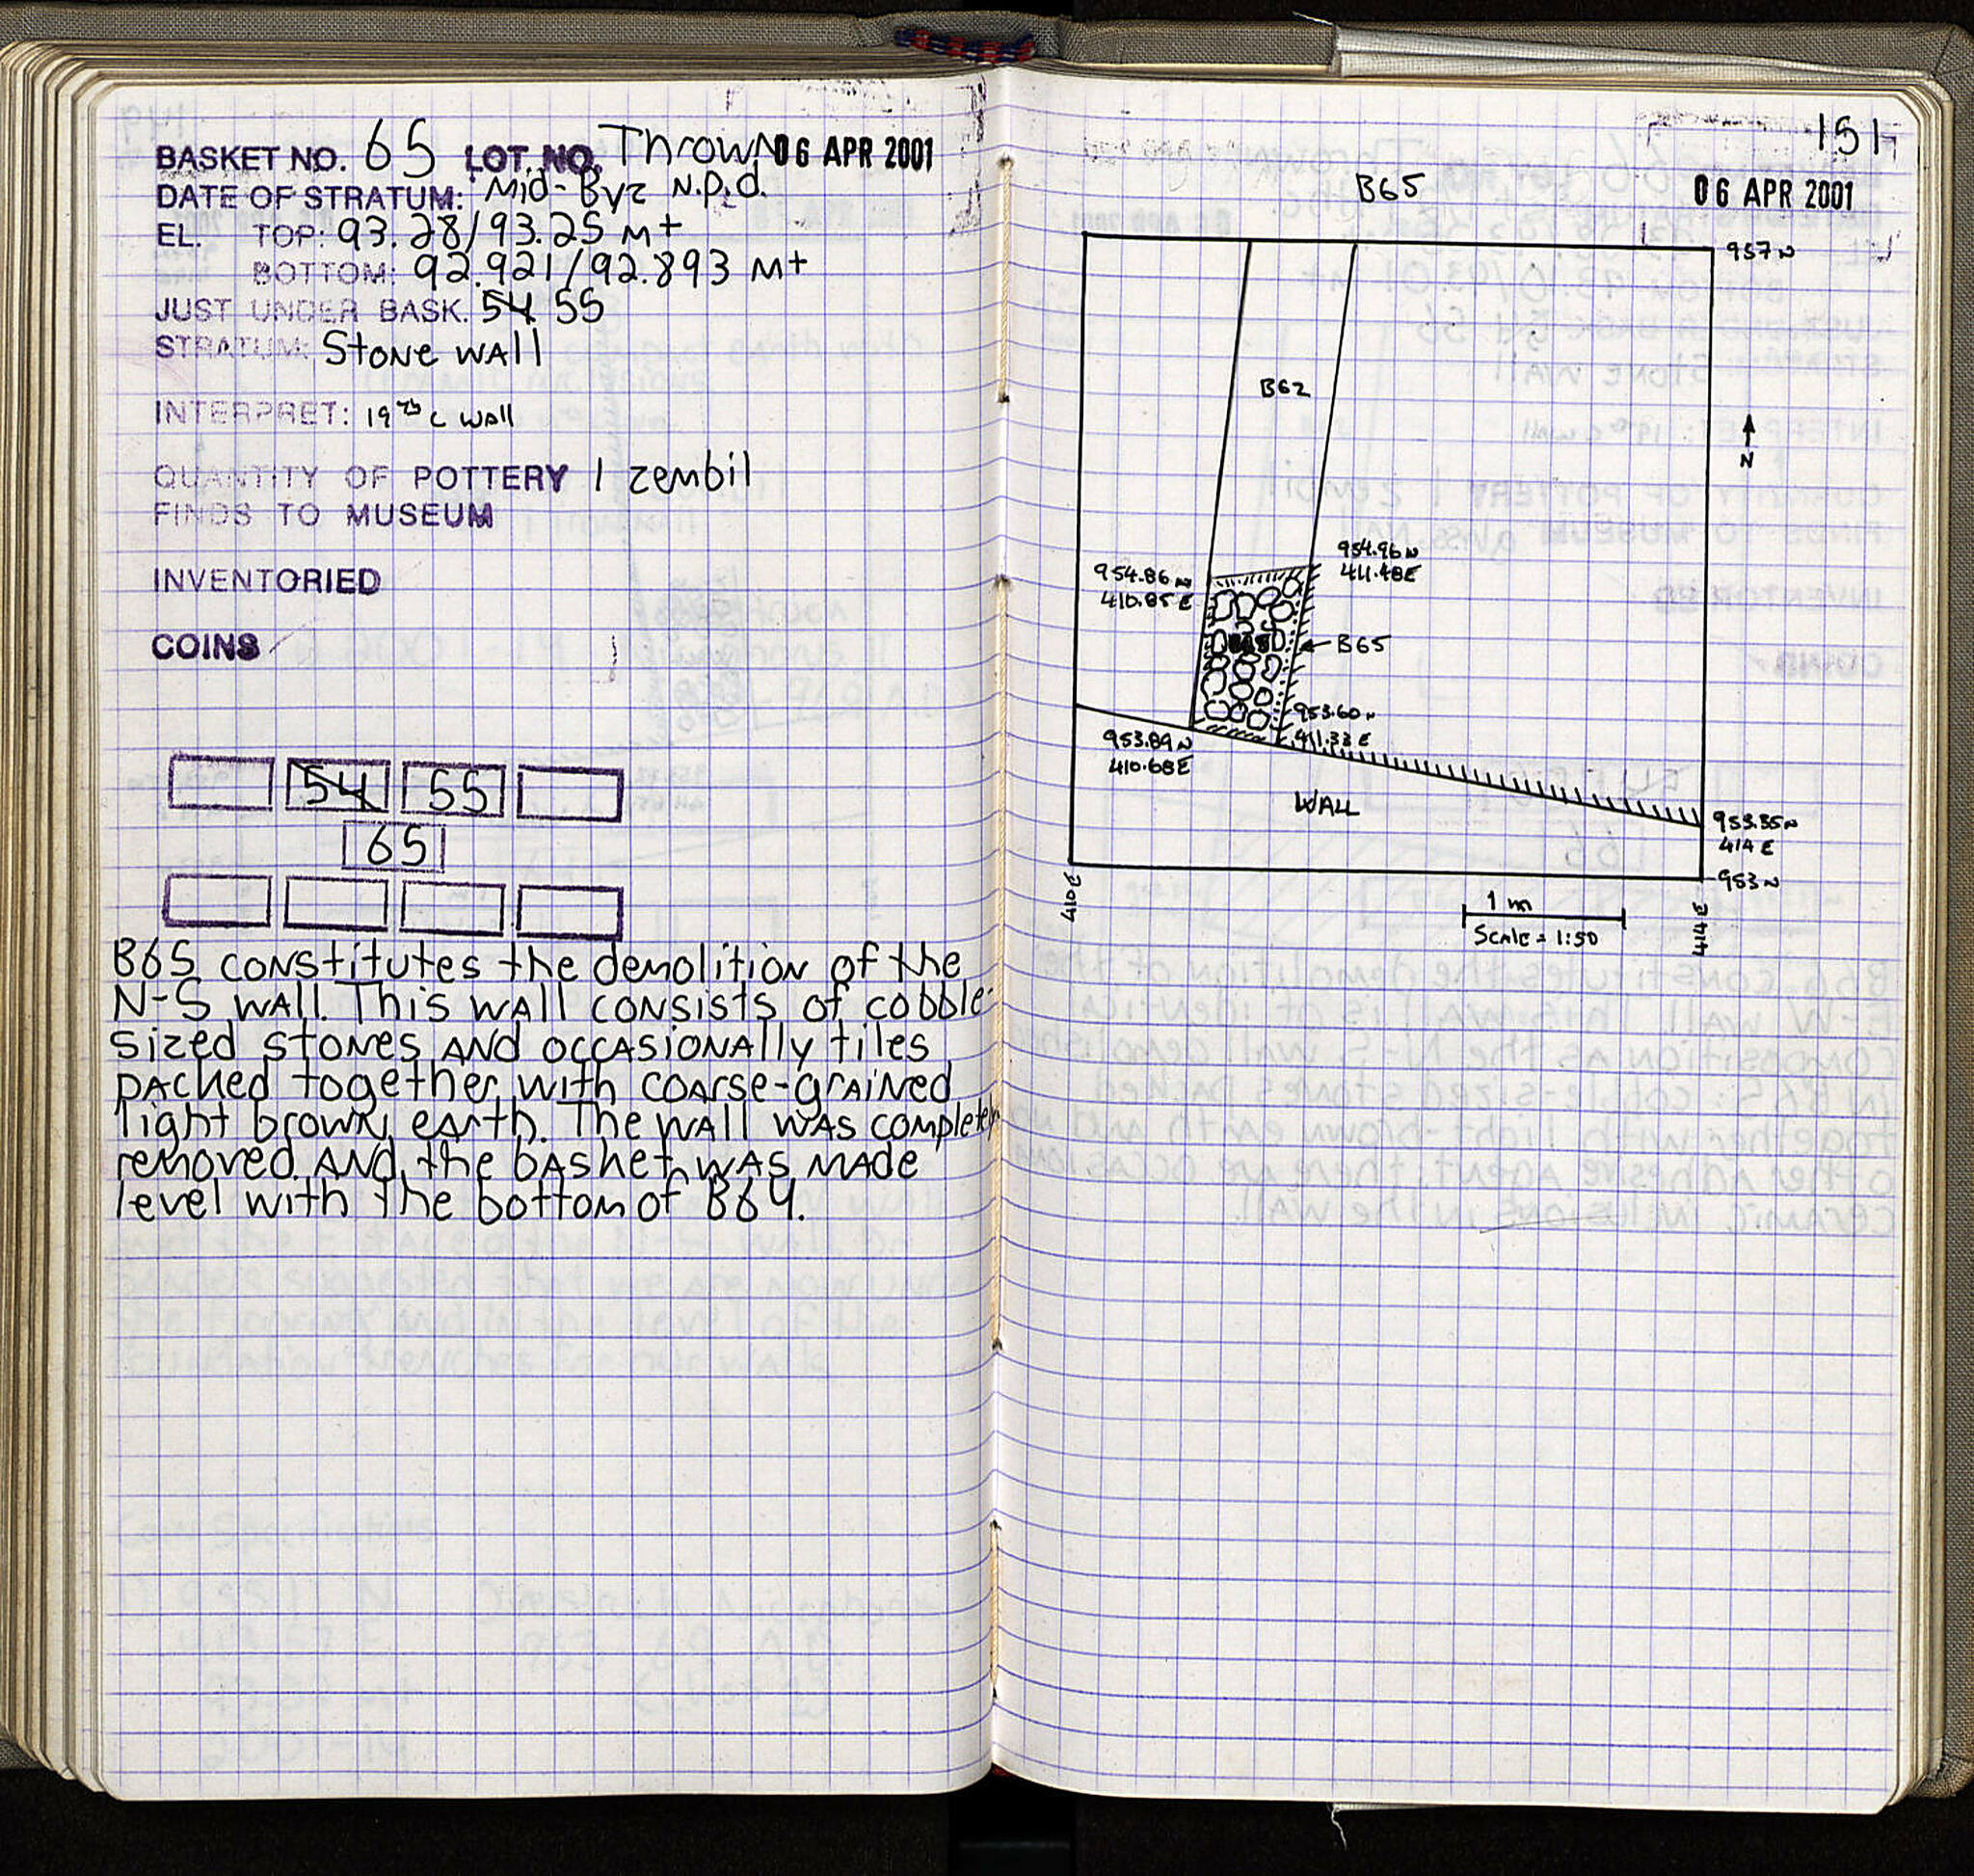 BASKET NO. 65 LOT. NO. Thrown 06 APR 2001
DATE OF STRATUM: Mid-Byz N.P.d.
EL. TOP: 93.28/93.25 M+
BOTTOM: 92.921/92.893 M+
JUST UNDER BASK. 54 55
STRATUM: Stone wall
INTERPRET: 19th C wall
QUANTITY OF POTTERY 1 zembil
FINDS TO MUSEUM
INVENTORIED
COINS
54 55
65
B65 constitutes the demolition of the
N-S wall. This wall consists of cobble-
sized stones and occasionally tiles
packed together with coarse-grained
light brown earth. The wall was completely
removed and the basket was made
level with the bottom of B64.
151
B65 06 APR 2001
957 N
B62
N
954.96 N
411.48 E
954.86 N
410.85 E
B65
953.60 N
411.33 E
953.89 N
410.68 E
WALL
953.35 N
414 E
953 N
410 E
414 E
1 m
Scale = 1:50